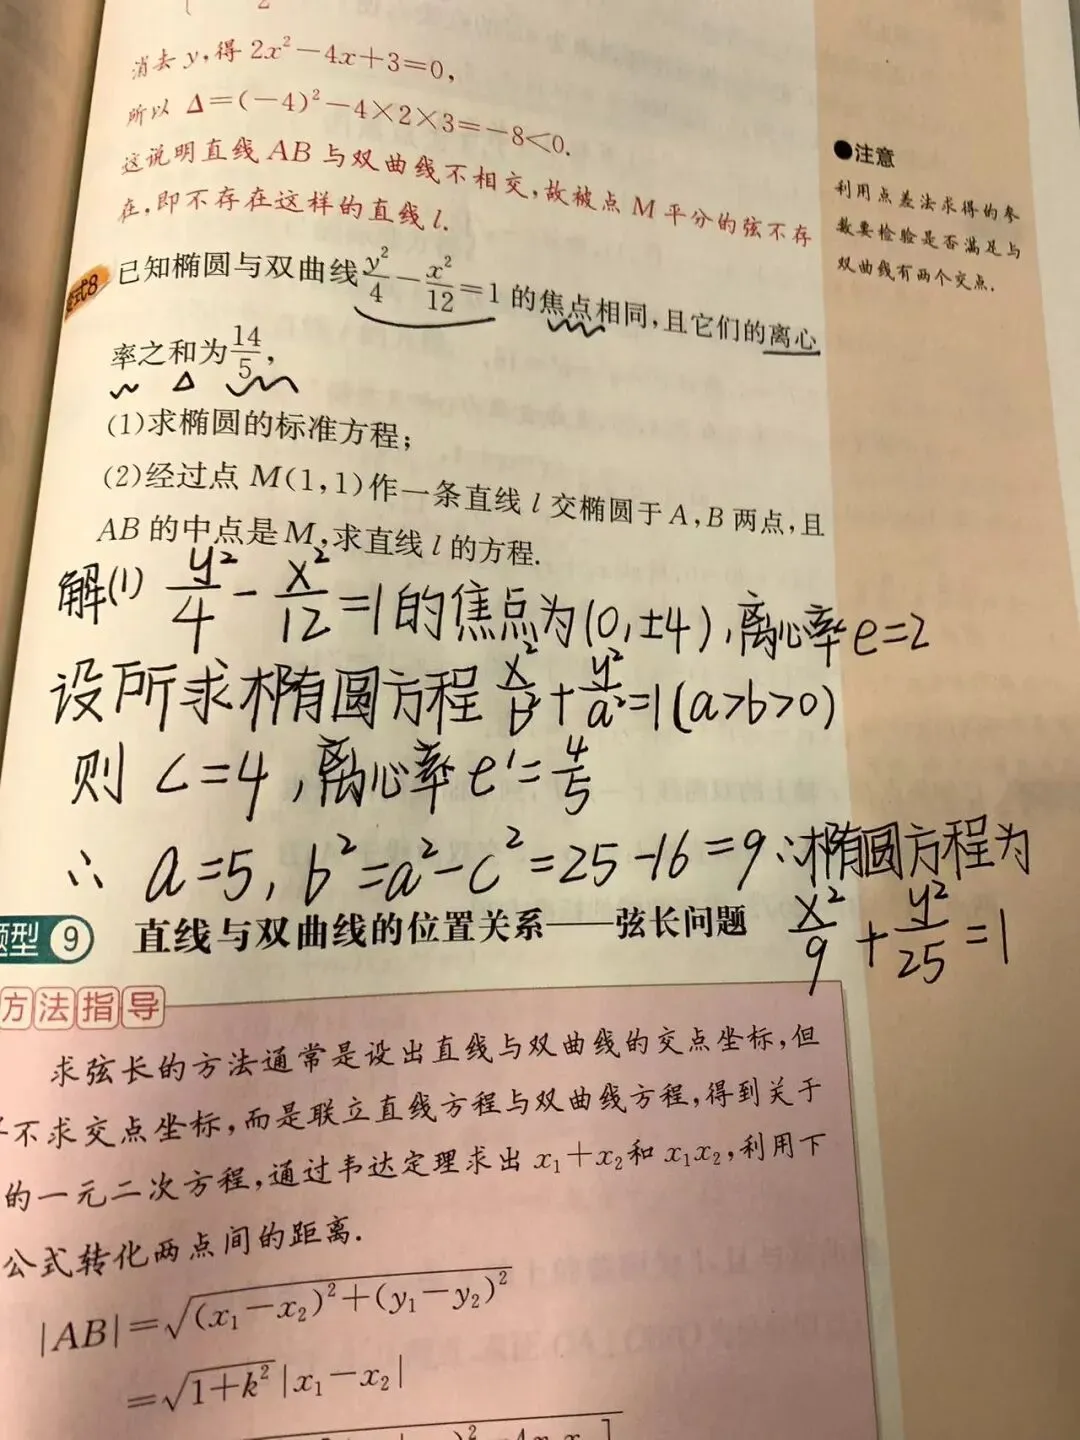 2
消去 y,得 2x²－4x＋3＝0,
所以 Δ＝(－4)²－4×2×3＝－8<0.
这说明直线 AB 与双曲线不相交,故被点 M 平分的弦不存
在,即不存在这样的直线 l.
●注意
利用点差法求得的参
数要检验是否满足与
双曲线有两个交点.
式8 已知椭圆与双曲线 y²/4－x²/12＝1 的焦点相同,且它们的离心
率之和为 14/5,
(1)求椭圆的标准方程;
(2)经过点 M(1,1)作一条直线 l 交椭圆于 A,B 两点,且
AB 的中点是 M,求直线 l 的方程.
解(1) y²/4 - x²/12 = 1的焦点为(0,±4),离心率e=2
设所求椭圆方程 x²/b² + y²/a² = 1(a>b>0)
则 c=4,离心率e'=4/5
∴ a=5, b²=a²-c²=25-16=9 ∴椭圆方程为
x²/9 + y²/25 = 1
题型 9 直线与双曲线的位置关系——弦长问题
方法指导
求弦长的方法通常是设出直线与双曲线的交点坐标,但
不求交点坐标,而是联立直线方程与双曲线方程,得到关于
的一元二次方程,通过韦达定理求出 x₁＋x₂和 x₁x₂,利用下
公式转化两点间的距离.
|AB|＝√(x₁－x₂)²＋(y₁－y₂)²
＝√1＋k² |x₁－x₂|